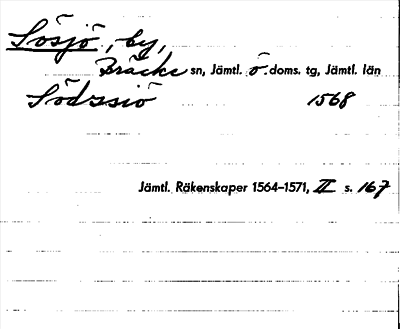 Sösjö, by,
Bräcke sn, Jämtl. ö. doms. tg, Jämtl. län
Södssiö 1568
Jämtl. Räkenskaper 1564–1571, II s. 167